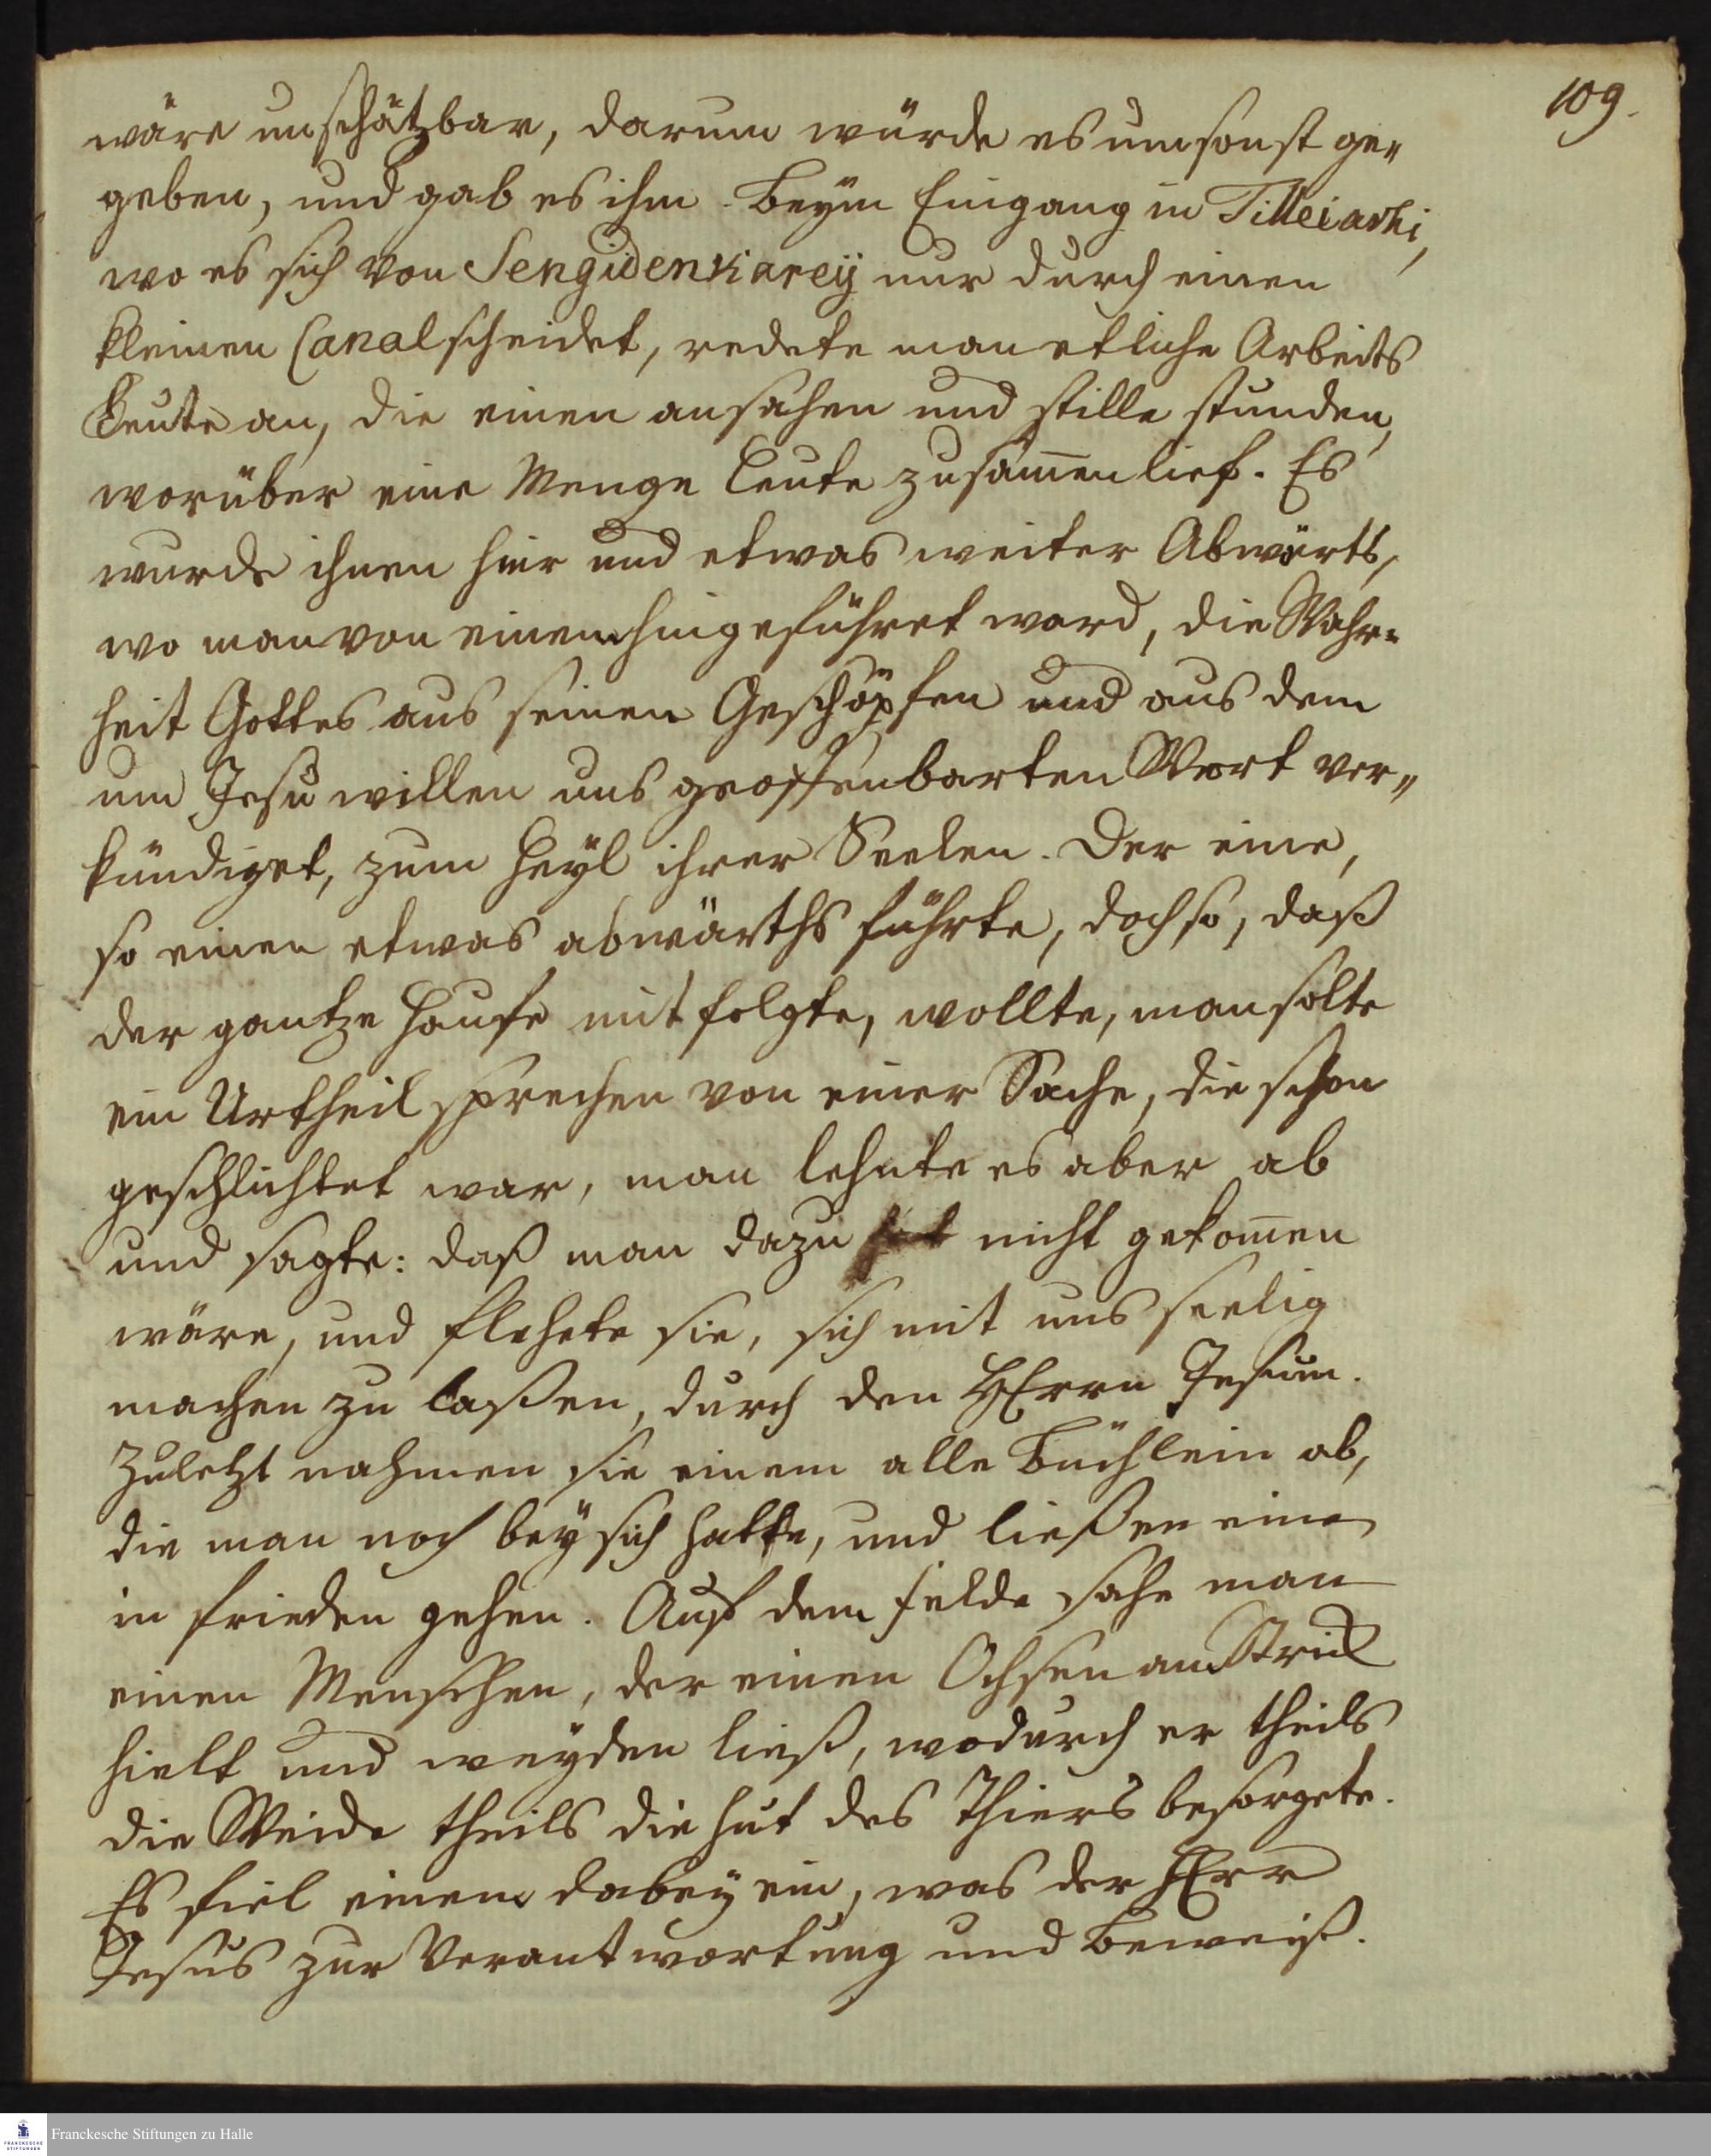 109.
wäre unschätzbar, darum würde es umsonst ge„
geben, und gab es ihm. Beym Eingang in Tilleiarhi,
wo es sich von Sengidenkareÿ nur durch einen
kleinen Canal scheidet, redete man etliche Arbeits
Leute an, die einen ansahen und stille stunden,
worüber eine Menge Leute zusam̅en lief. Es
wurde ihnen hier und etwas weiter Abwärts,
wo man von einem hingeführet ward, die Wahr=
heit Gottes aus seinen Geschöpfen und aus dem
um Jesu willen uns geoffenbarten Wort ver„
kündiget, zum Heyl ihrer Seelen. Der eine,
so einen etwas abwärths führte, doch so, daß
der gantze Haufe mit folgte, wollte, man solte
ein Urtheil sprechen von einer Sache, die schon
geschlichtet war, man lehnte es aber ab
und sagte: daß man dazu nicht gekom̅en
wäre, und flehete sie, sich mit uns seelig
machen zu laßen, durch den HErrn Jesum.
Zuletzt nahmen sie einem alle Büchlein ab,
die man noch beÿ sich hatte, und ließen einen
in frieden gehen. Auf dem felde sahe man
einen Menschen, der einen Ochsen am Strick
hielt und weÿden ließ, wodurch er theils
die Weide theils die hut des Thiers besorgete.
Es fiel einem dabeÿ ein, was der HErr
Jesus zur Verantwortung und Beweiß.
Franckesche Stiftungen zu Halle